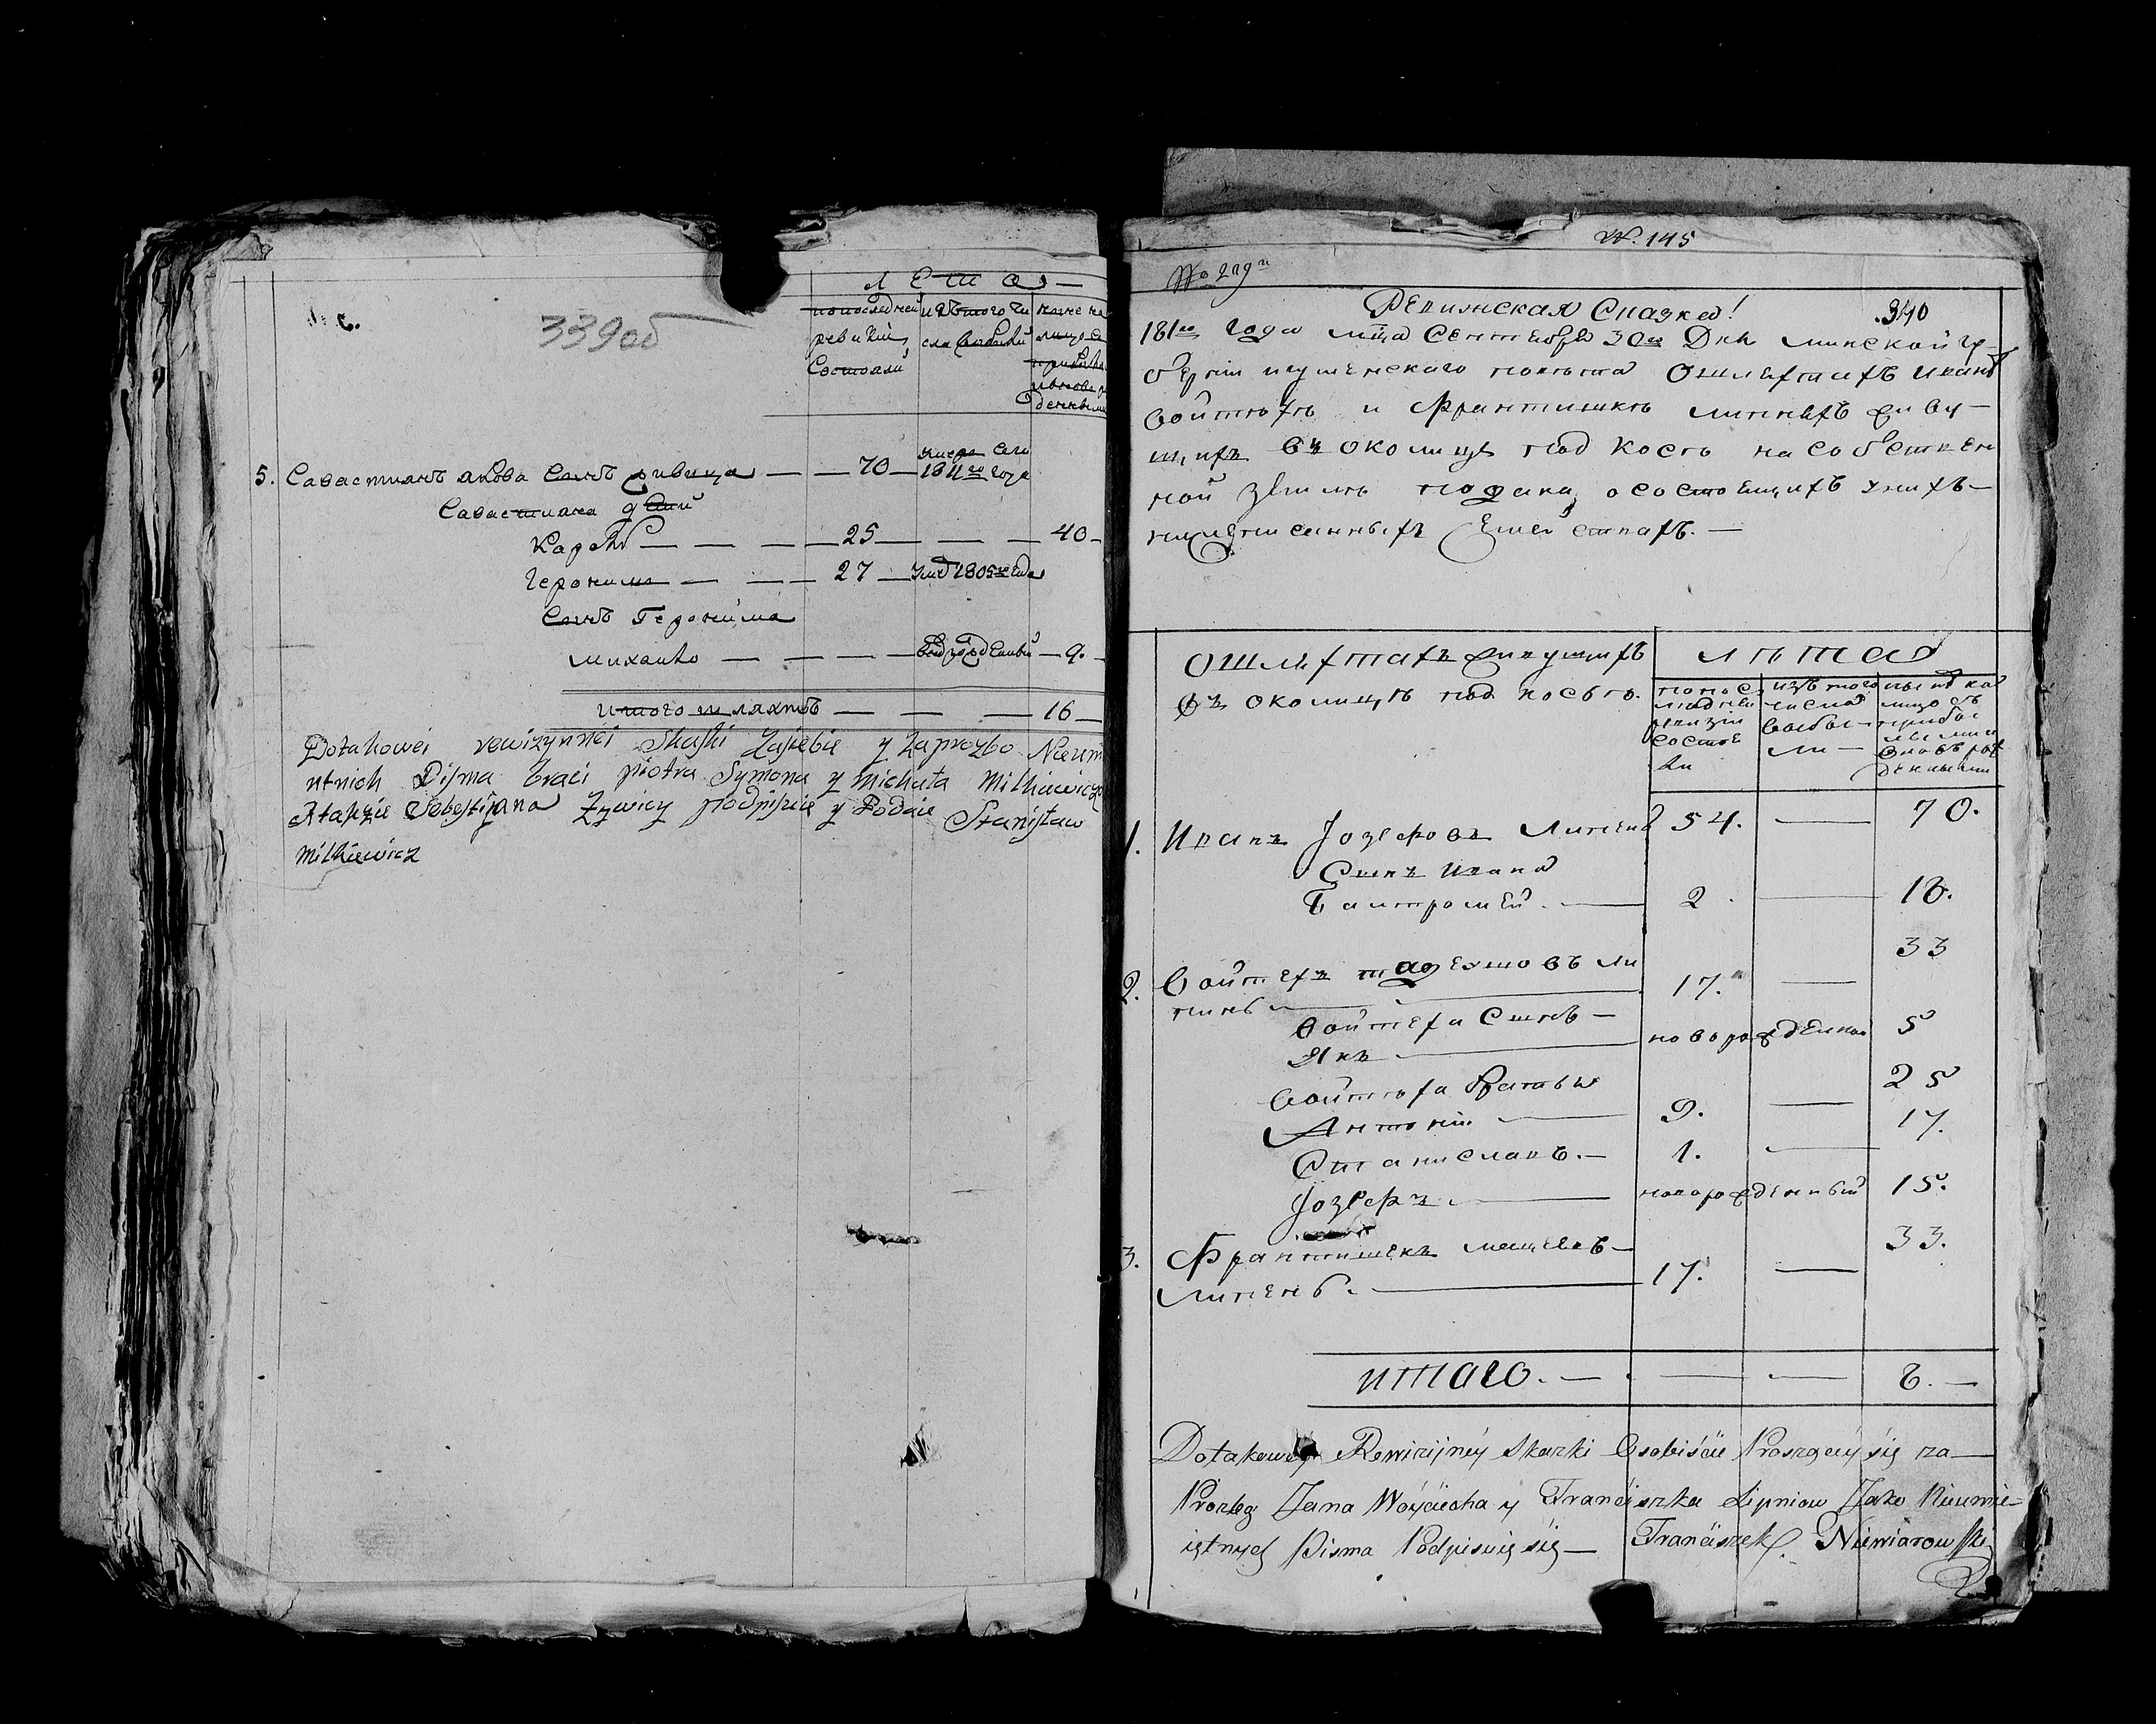 339об
Лета
по последней
ревизии
состояли
изъ того чи
сла выбыли
ныне на
лицо съ
5. Савастианъ якова Сынъ живица — — 70 — умеръ сего 1811го года
Савастиана дети
Кароль — — — — 25 — — — 40 —
Геронимъ — — — 27 — умре 1805го года
Сынъ Геронима
михайло — — — — новорожденный — 9. —
итого шляхты — — — 16 —
Dotakowei rewizynnei Skaski za siebie y za prozbo Nieum
ntnich Pisma braci piotra Symona y michała Milkiewiczo
A także Sebestijana Zywicy podpisuie y Podaie Stanisław
Milkiewicz
N. 145
No 209
340
Ревижская Сказка!
1811го года мца Сентебря 30го Дня минской гу-
берніи игуменскаго повета Ошляхтахъ Иване
войтехе и Франтишке липняхъ живу-
щихъ въ околице подкосье на собствен
ной земли подана, о состоящихъ унихъ
нижеписанныхъ Семействахъ. —
Ошляхтахъ живущихъ
въ околице под косье.
лета
по пос
ледней
ревизіи
состоя
ли
изъ того
числа
выбы-
ли —
ныне на
лицо съ
прибы
лыми и
вновь рож
денными
1. Иванъ Jозефовъ Липень 54. — 70.
Сынъ Ивана
Балтромей. — 2. — 18.
33
2. Войтехъ тадеушовъ ли
пинь — 17. —
войтеха Сынъ —
Янъ — новорожденной 5
войтеха братья 25
Антоній — 9. —
17.
Станиславъ. — 1. —
Jозефъ — новорожденный 15.
33.
3. Франтишекъ мацеевъ —
Липень. — 17. —
итаго. — — — 8. —
Dotakowey Rewizijney skazki Osobiście Proszący się za —
Prozbą Jana Woyciecha y Franciszka Lipniow Jako Nieumie-
iętnych Pisma Podpisuię się — Franciszek Niewiarowski